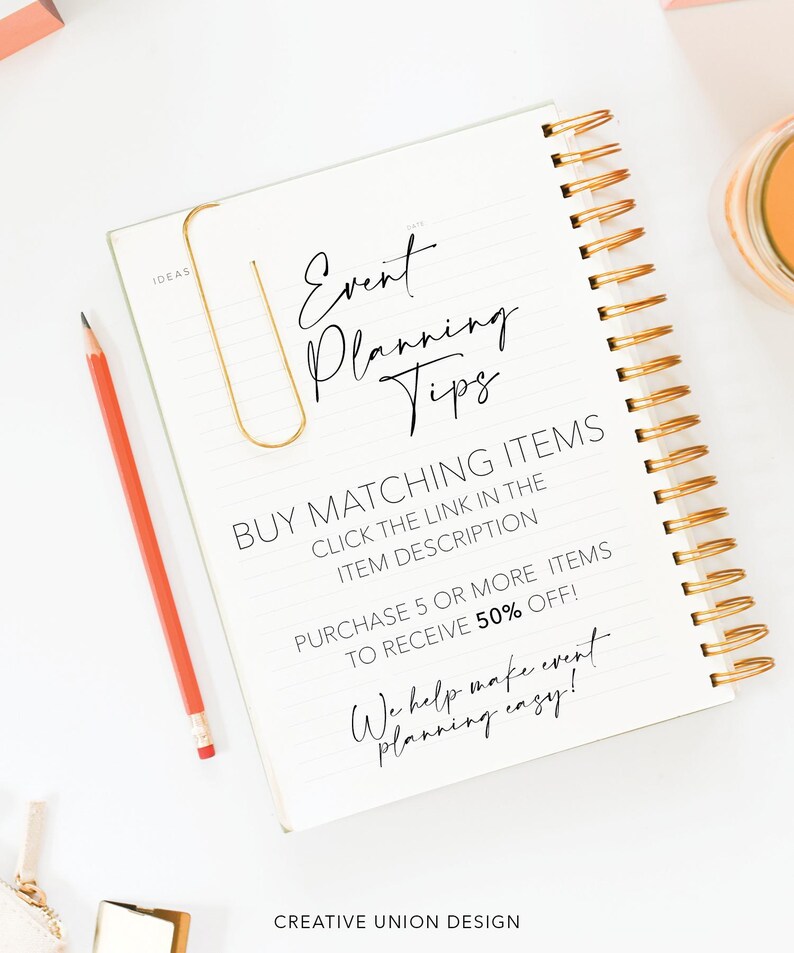 DATE
IDEAS
Event
Planning
Tips
BUY MATCHING ITEMS
CLICK THE LINK IN THE
ITEM DESCRIPTION
PURCHASE 5 OR MORE ITEMS
TO RECEIVE 50% OFF!
We help make event
planning easy!
CREATIVE UNION DESIGN